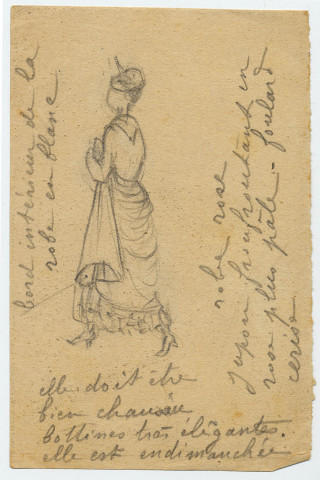 bord intérieur de la
robe en blanc
robe rose
jupon froufroutant en
rose plus pâle - foulard
cerise
elle doit être
bien chaussée
bottines très élégantes.
elle est endimanchée